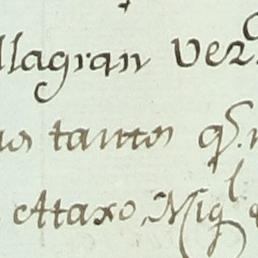 llagran vez
os tantos q.
Attaxo, Migl